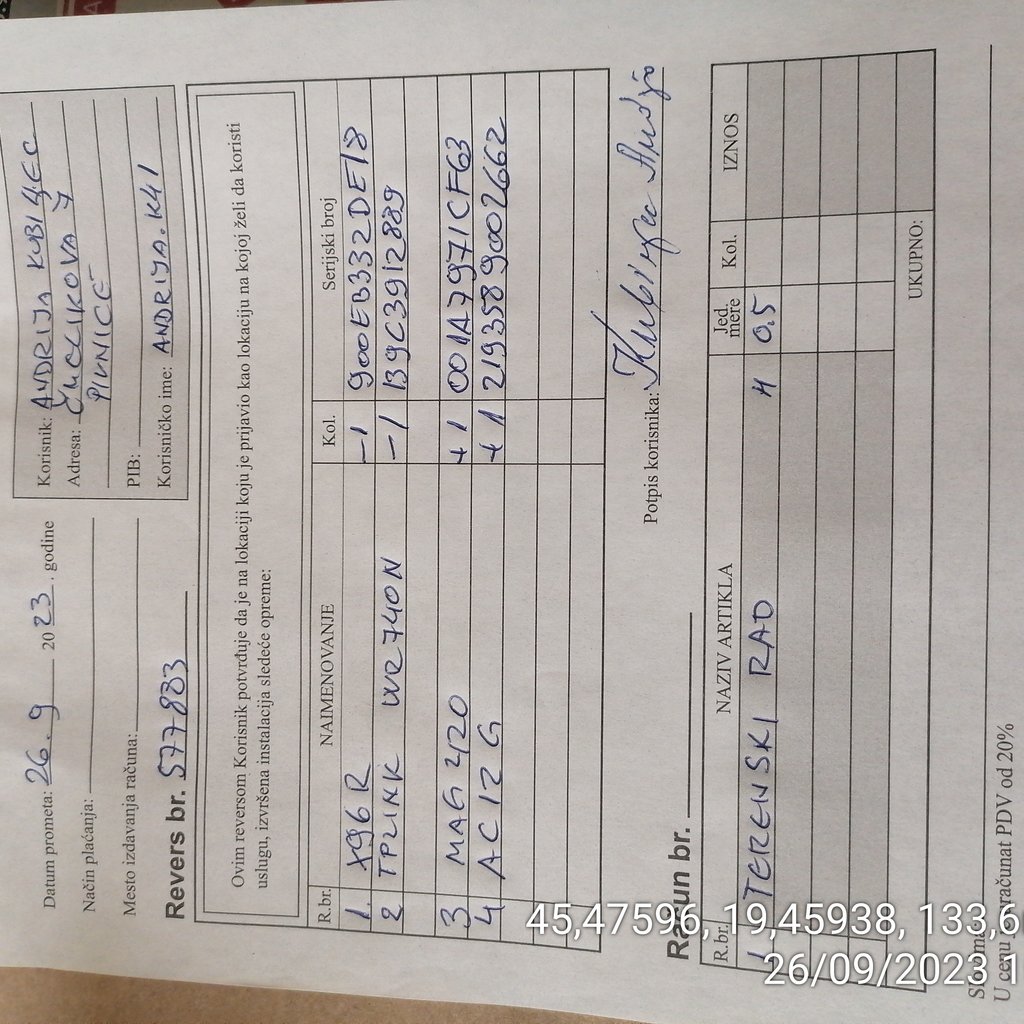 Datum prometa: 26.9 2023. godine
Način plaćanja:
Mesto izdavanja računa:
Revers br. 577883
Korisnik: ANDRIJA KUBINEC
Adresa: ČMELIKOVA 7
PIVNICE
PIB:
Korisničko ime: ANDRIJA.K41
Ovim reversom Korisnik potvrđuje da je na lokaciji koju je prijavio kao lokaciju na kojoj želi da koristi
uslugu, izvršena instalacija sledeće opreme:
R.br. NAIMENOVANJE Kol. Serijski broj
1. X96R -1 900EB332DE18
2 TPLINK WR740N -1 B9C3912889
3 MAG 420 +1 001A7971CF63
4 AC12G +1 2193589002662
Potpis korisnika:
Račun br.
R.br. NAZIV ARTIKLA Jed. mere Kol. IZNOS
1. TERENSKI RAD H 0.5
UKUPNO:
U cenu je uračunat PDV od 20%
45,47596, 19,45938, 133,6
26/09/2023 1